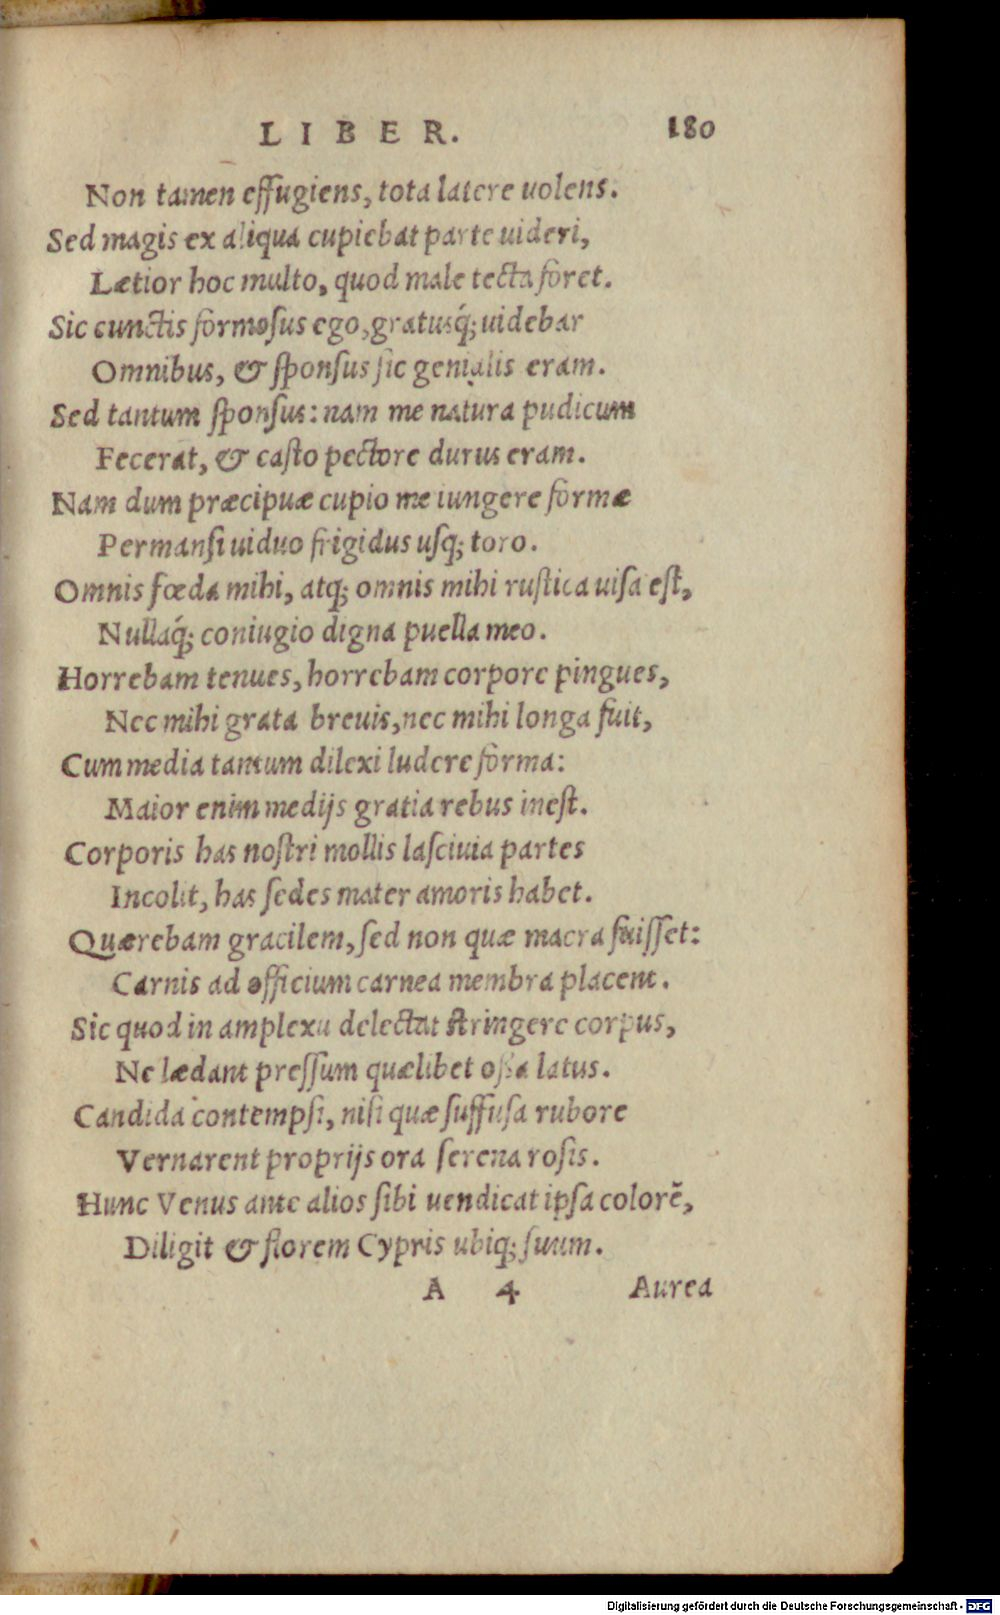 LIBER. 180
Non tamen effugiens, tota latere uolens.
Sed magis ex aliqua cupiebat parte uideri,
Lætior hoc multo, quod male tecta foret.
Sic cunctis formosus ego, gratusq́; uidebar
Omnibus, & sponsus sic genialis eram.
Sed tantum sponsus: nam me natura pudicum
Fecerat, & casto pectore durus eram.
Nam dum præcipuæ cupio me iungere formæ
Permansi uiduo frigidus usq; toro.
Omnis fœda mihi, atq; omnis mihi rustica uisa est,
Nullaq́; coniugio digna puella meo.
Horrebam tenues, horrebam corpore pingues,
Nec mihi grata breuis, nec mihi longa fuit,
Cum media tantum dilexi ludere forma:
Maior enim medijs gratia rebus inest.
Corporis has nostri mollis lasciuia partes
Incolit, has sedes mater amoris habet.
Quærebam gracilem, sed non quæ macra fuisset:
Carnis ad officium carnea membra placent.
Sic quod in amplexu delectat stringere corpus,
Ne lædant pressum quælibet ossa latus.
Candida contempsi, nisi quæ suffusa rubore
Vernarent proprijs ora serena rosis.
Hunc Venus ante alios sibi uendicat ipsa colorē,
Diligit & florem Cypris ubiq; suum.
A 4 Aurea
Digitalisierung gefördert durch die Deutsche Forschungsgemeinschaft - DFG